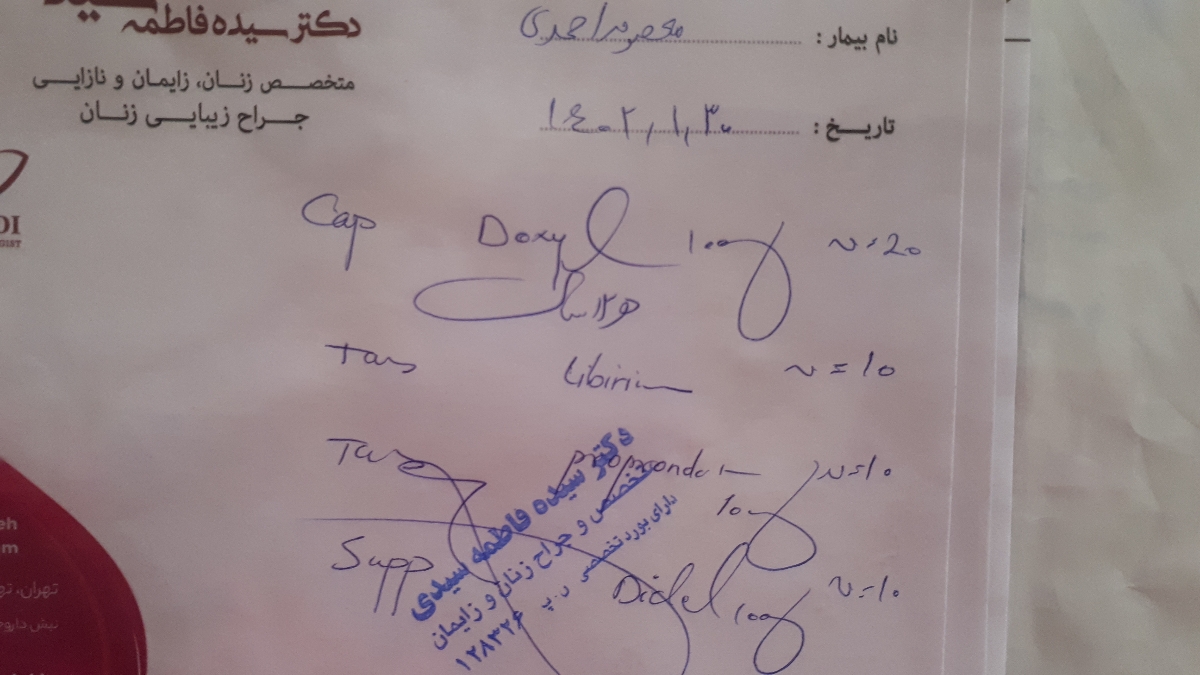 دکتر سیده فاطمه
متخصص زنان، زایمان و نازایی
جراح زیبایی زنان
نام بیمار : معصومه احمدی
تاریخ : ۱۴۰۲,۱,۳۰
Cap Doxy 100 mg N=20
هر ۱۲ ساعت
Tab N=10
Tab N=10
10 mg
Supp Diclo 100 mg N=10
دکتر سیده فاطمه سیدی
متخصص و جراح زنان و زایمان
دارای بورد تخصصی
ن.پ ۱۲۸۳۲۶
DI
GIST
eh
m
تهران، ته
نبش دارو